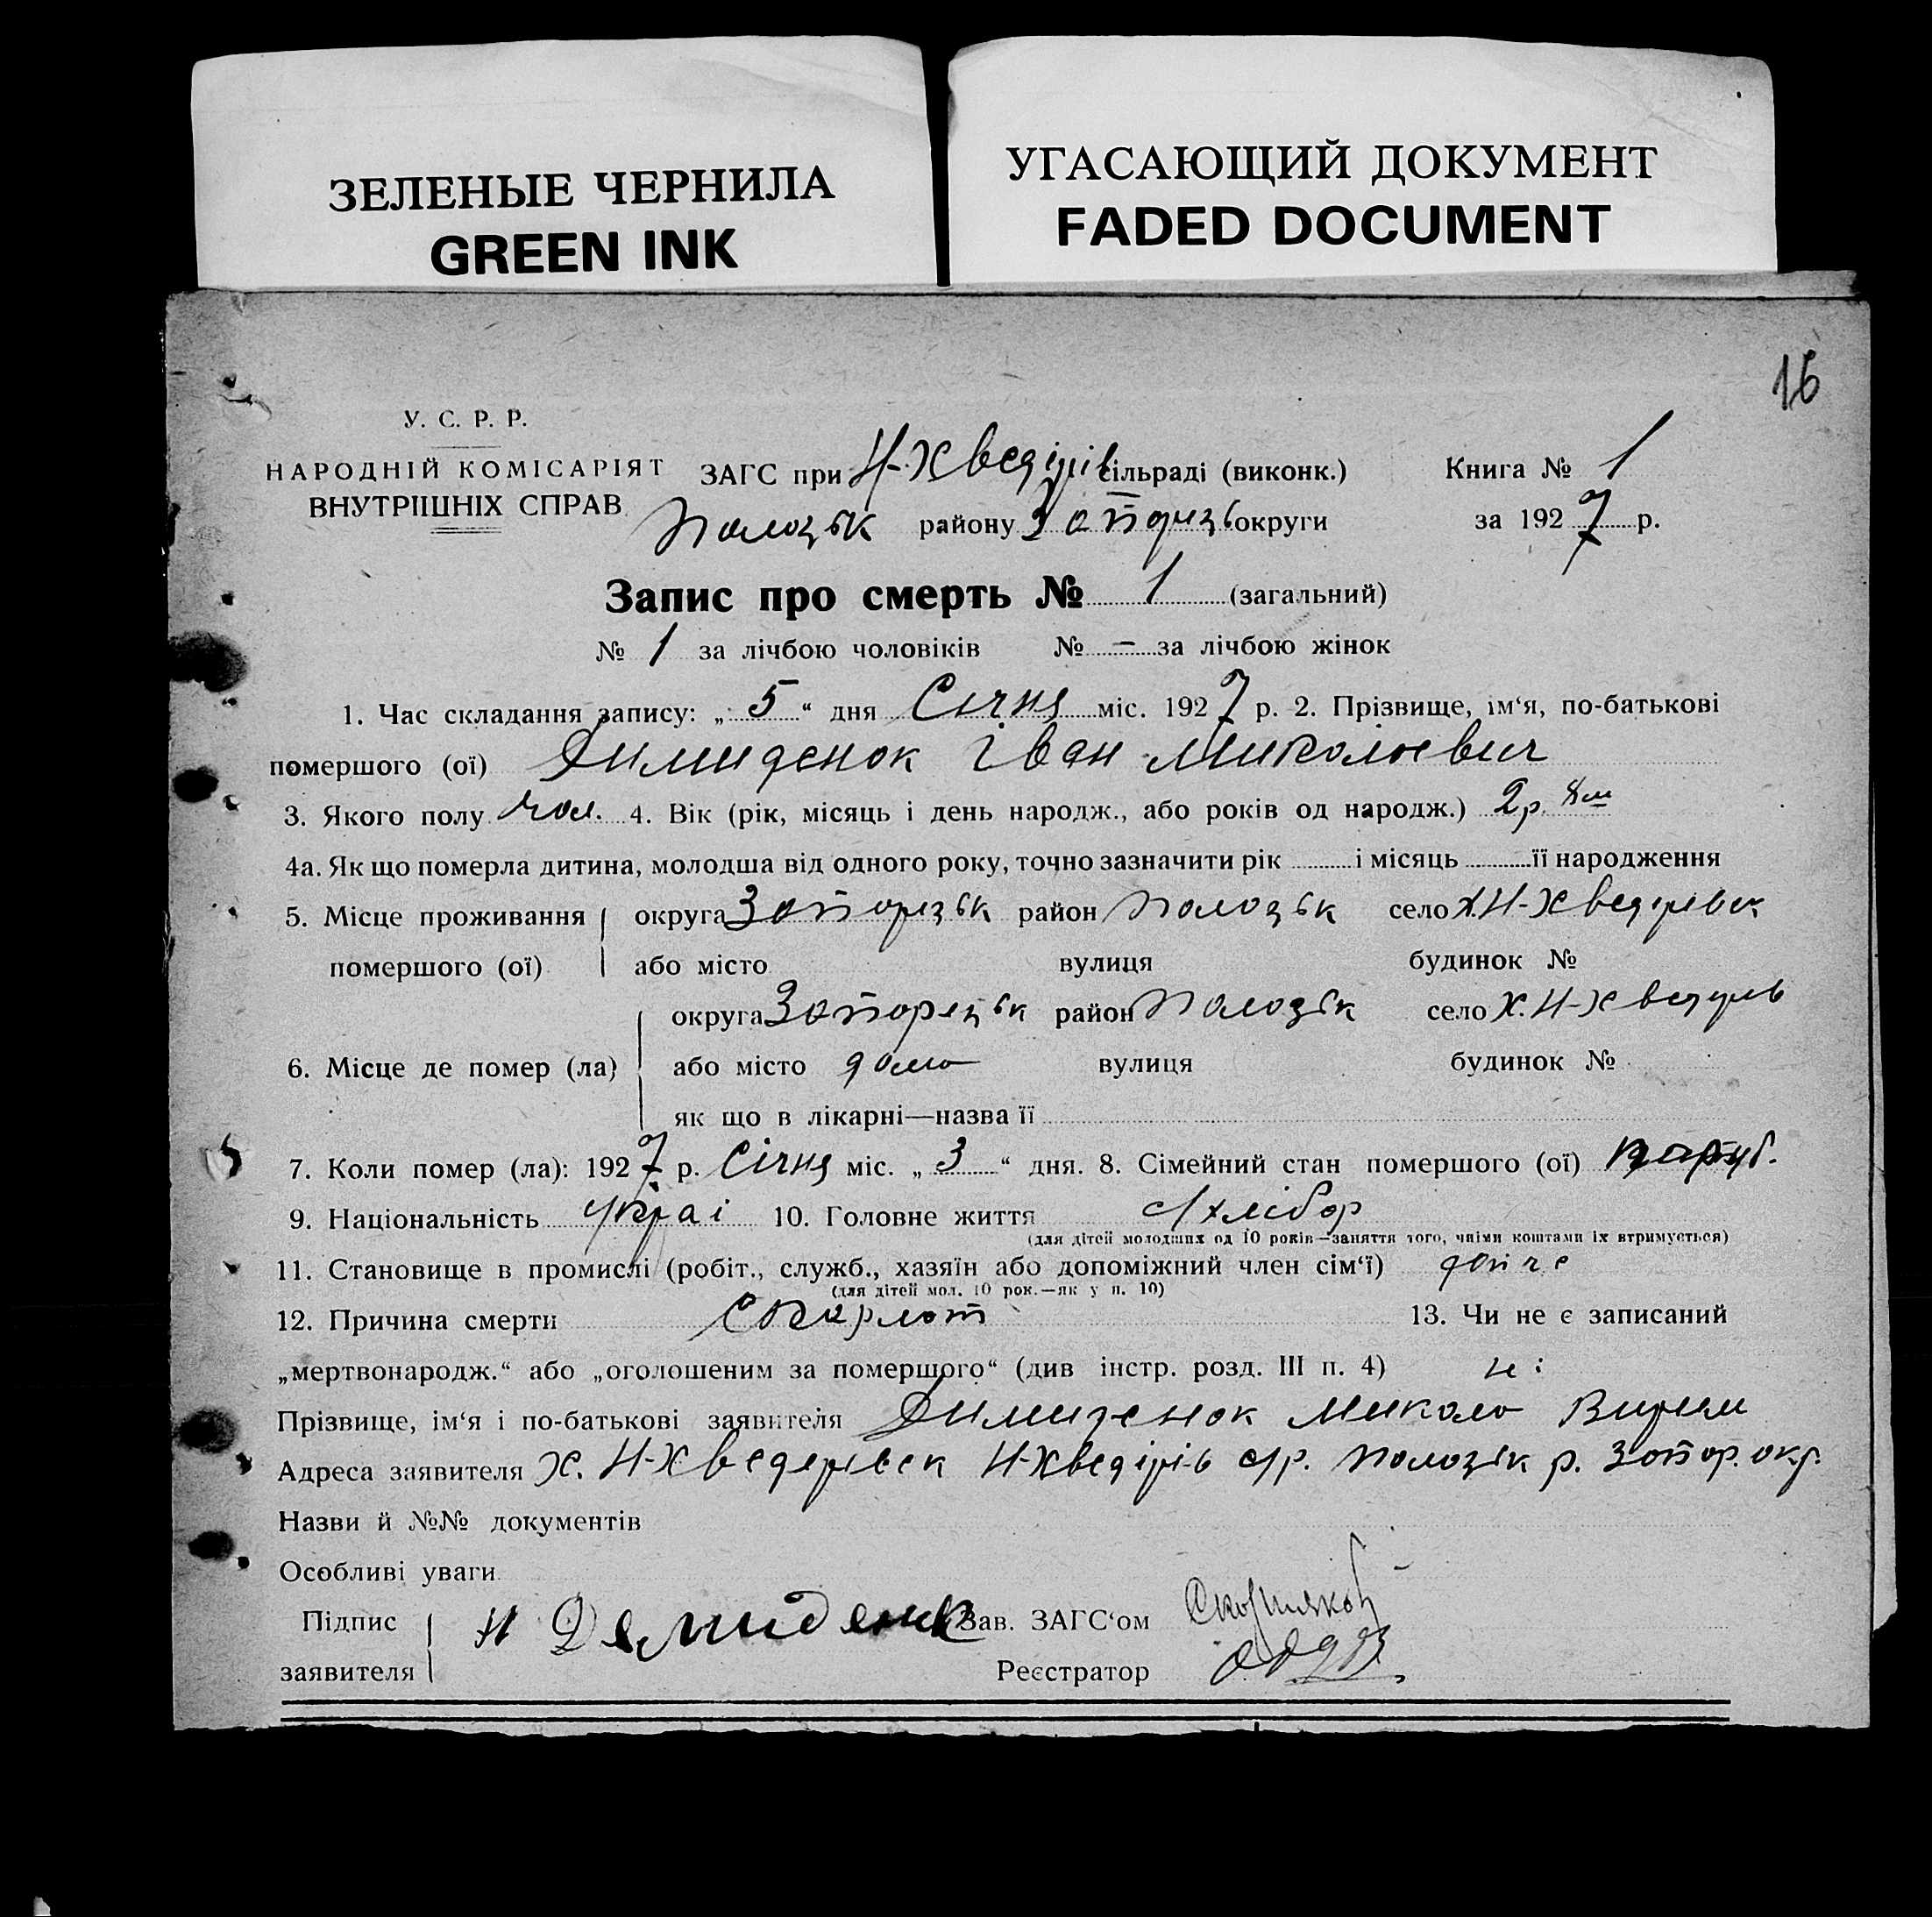 ЗЕЛЕНЫЕ ЧЕРНИЛА
GREEN INK
УГАСАЮЩИЙ ДОКУМЕНТ
FADED DOCUMENT
16
У. С. Р. Р.
НАРОДНІЙ КОМІСАРІЯТ
ВНУТРІШНІХ СПРАВ
ЗАГС при Н-Хведірів сільраді (виконк.) Книга № 1
Полозьк району Запорізь округи за 1927 р.
Запис про смерть № 1 (загальний)
№ 1 за лічбою чоловіків № - за лічбою жінок
1. Час складання запису: „5“ дня Січня міс. 1927 р. 2. Прізвище, ім‘я, по-батькові
помершого (ої) Димиденок Іван Миколаевич
3. Якого полу чол. 4. Вік (рік, місяць і день народж., або років од народж.) 2 р. 8 м
4а. Як що померла дитина, молодша від одного року, точно зазначити рік і місяць її народження
5. Місце проживання помершого (ої) округа Запорізьк район Полозьк село х. Н-Хведерівск
або місто вулиця будинок №
6. Місце де помер (ла) округа Запорізьк район Полозьк село х. Н-Хведерів
або місто дома вулиця будинок №
як що в лікарні—назва її
7. Коли помер (ла): 1927 р. Січня міс. „3“ дня. 8. Сімейний стан помершого (ої) паруб.
9. Національність Украі 10. Головне життя хлібор
(для дітей молодших од 10 років—заняття того, чиїми коштами їх втримується)
11. Становище в промислі (робіт., служб., хазяїн або допоміжний член сім‘ї)
(для дітей мол. 10 рок.—як у п. 10)
12. Причина смерти Скарлат 13. Чи не є записаний
„мертвонародж.“ або „оголошеним за помершого“ (див інстр. розд. III п. 4) ні
Прізвище, ім‘я і по-батькові заявителя Димиденок Микола
Адреса заявителя х. Н-Хведерівск Н-Хведірів с/р. Полозьк р. Запор. окр.
Назви й №№ документів
Особливі уваги
Підпис заявителя Н Демиденк Зав. ЗАГС‘ом
Реєстратор